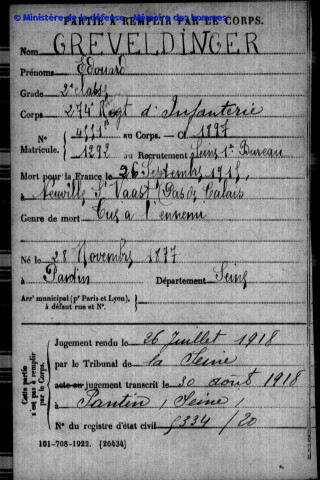 © Ministère de la défense - Mémoire des hommes
PARTIE A REMPLIR PAR LE CORPS.
Nom GREVELDINGER
Prénoms Edouard
Grade 2e classe
Corps 274e Régt d'Infanterie
N° 4551 au Corps. — Cl. 1897
Matricule. 1292 au Recrutement Seine 1er Bureau
Mort pour la France le 26 Septembre 1915
à Neuville St Vaast (Pas de Calais
Genre de mort Tué à l'ennemi
Né le 28 Novembre 1877
à Pantin Département Seine
Arrt municipal (pr Paris et Lyon),
à défaut rue et N°.
Cette partie
n'est pas à remplir
par le Corps.
Jugement rendu le 26 Juillet 1918
par le Tribunal de la Seine
acte ou jugement transcrit le 30 août 1918
à Pantin, (Seine)
N° du registre d'état civil 5334/20
101-708-1922. [26434]